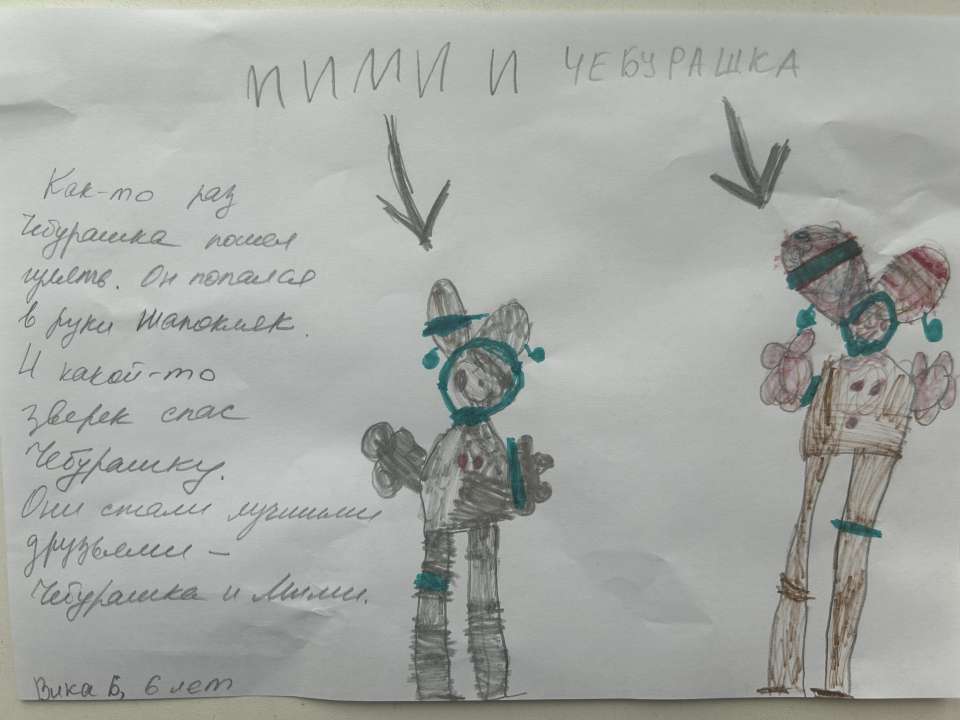 МИМИ И ЧЕБУРАШКА
Как-то раз
Чебурашка пошел
гулять. Он попался
в руки Шапокляк.
И какой-то
зверек спас
Чебурашку.
Они стали лучшими
друзьями –
Чебурашка и Мими.
Вика Б, 6 лет